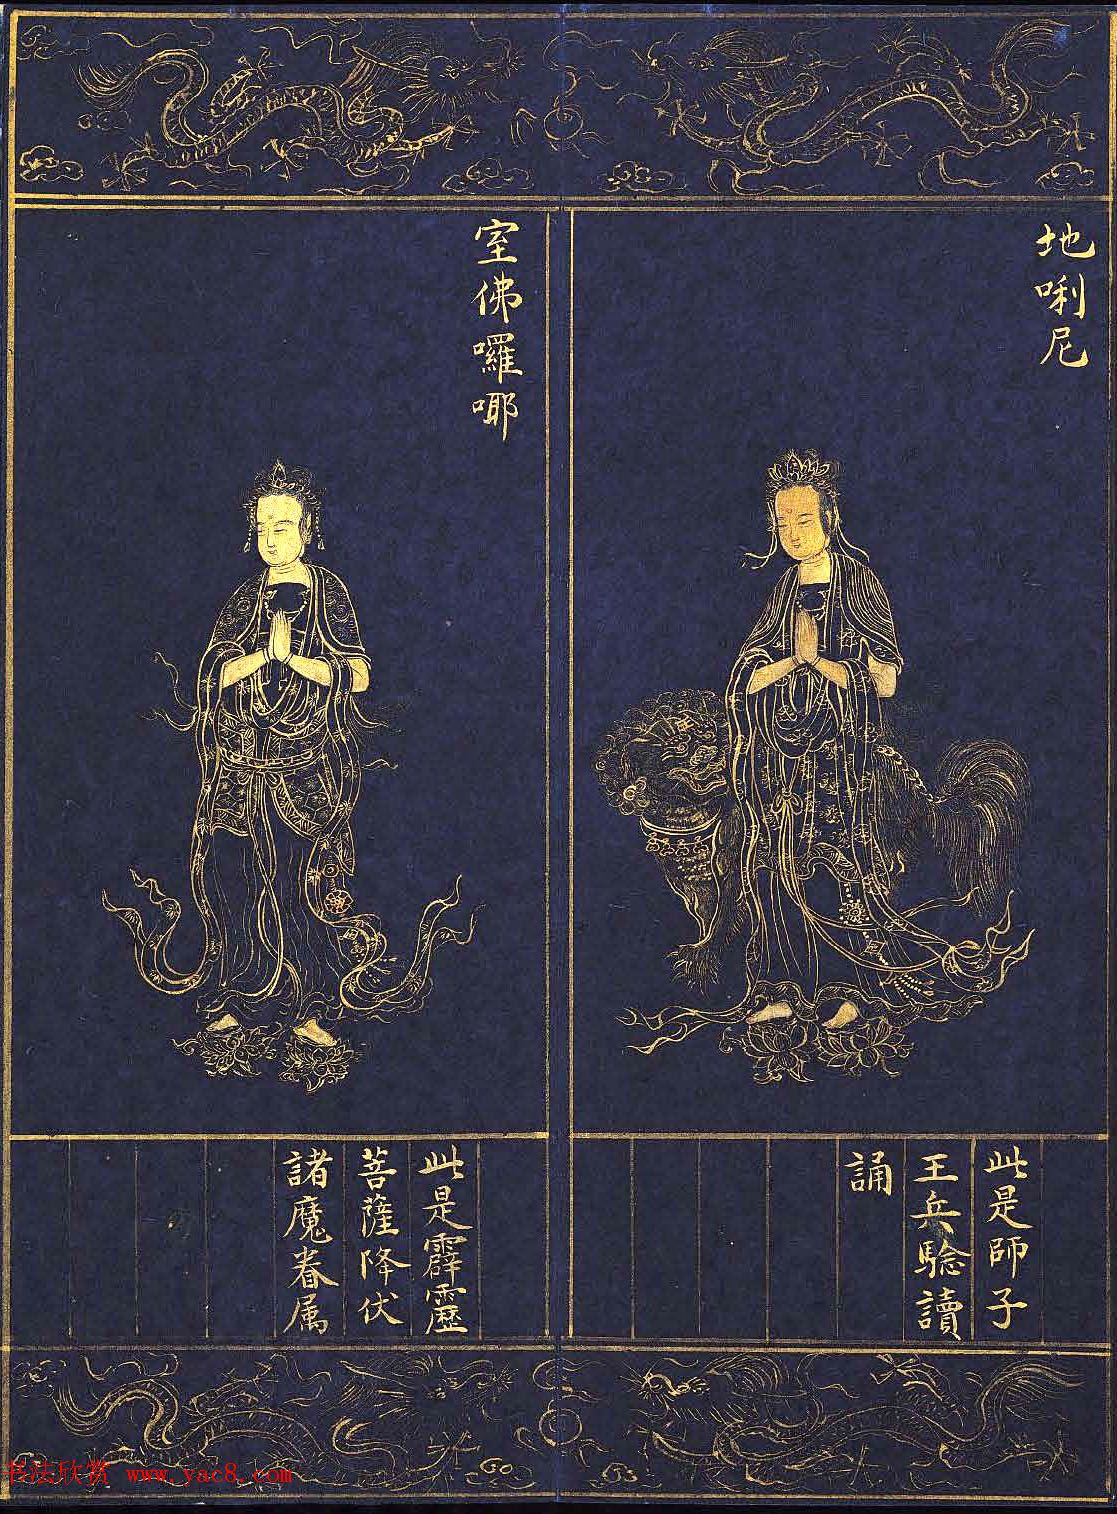 地唎尼
此是師子
王兵驗讀
誦
室佛囉㖿
此是霹靂
菩薩降伏
諸魔眷属
书法欣赏 www.yac8.com